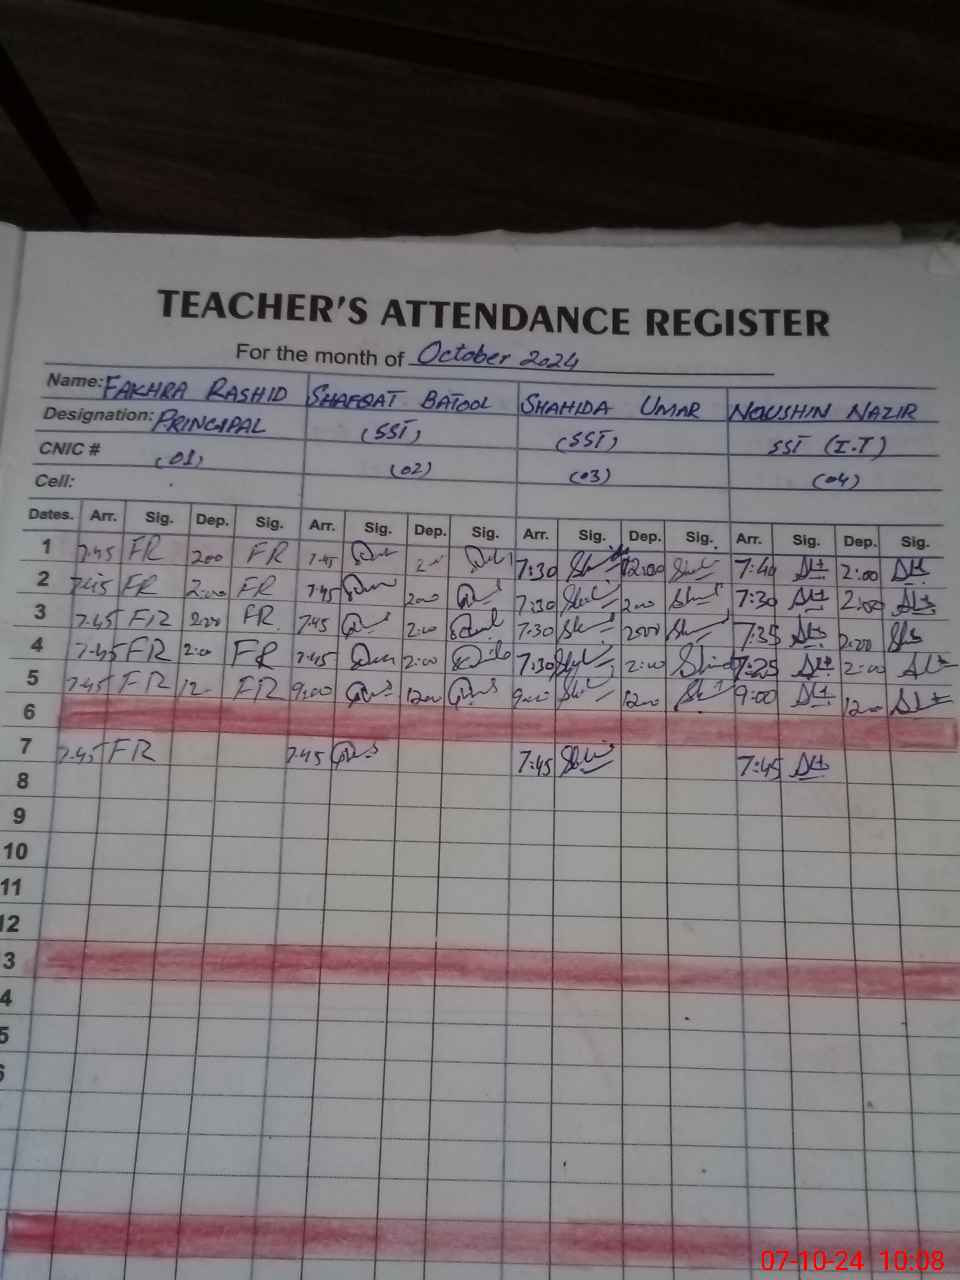 TEACHER'S ATTENDANCE REGISTER
For the month of October 2024
Name: FAKHRA RASHID SHAFQAT BATOOL SHAHIDA UMAR NOUSHIN NAZIR
Designation: PRINCIPAL (SST) (SST) SST (I.T)
CNIC # (01) (02) (03) (04)
Cell:
Dates. Arr. Sig. Dep. Sig. Arr. Sig. Dep. Sig. Arr. Sig. Dep. Sig. Arr. Sig. Dep. Sig.
1 7:45 FR 2:00 FR 7:45 7:30 7:40 2:00
2 7:45 FR 2:00 FR 7:45 2:00 7:30 2:00 7:30 2:00
3 7:45 FR 2:00 FR 7:45 2:00 7:30 7:35 2:00
4 7:45 FR 2:00 FR 7:45 2:00 7:30 2:00 7:25 2:00
5 7:45 FR 12 FR 9:00 12:00 9:00 12:00 9:00 12:00
6
7 7:45 FR 7:45 7:45 7:45
8
9
10
11
12
3
4
5
07-10-24 10:08